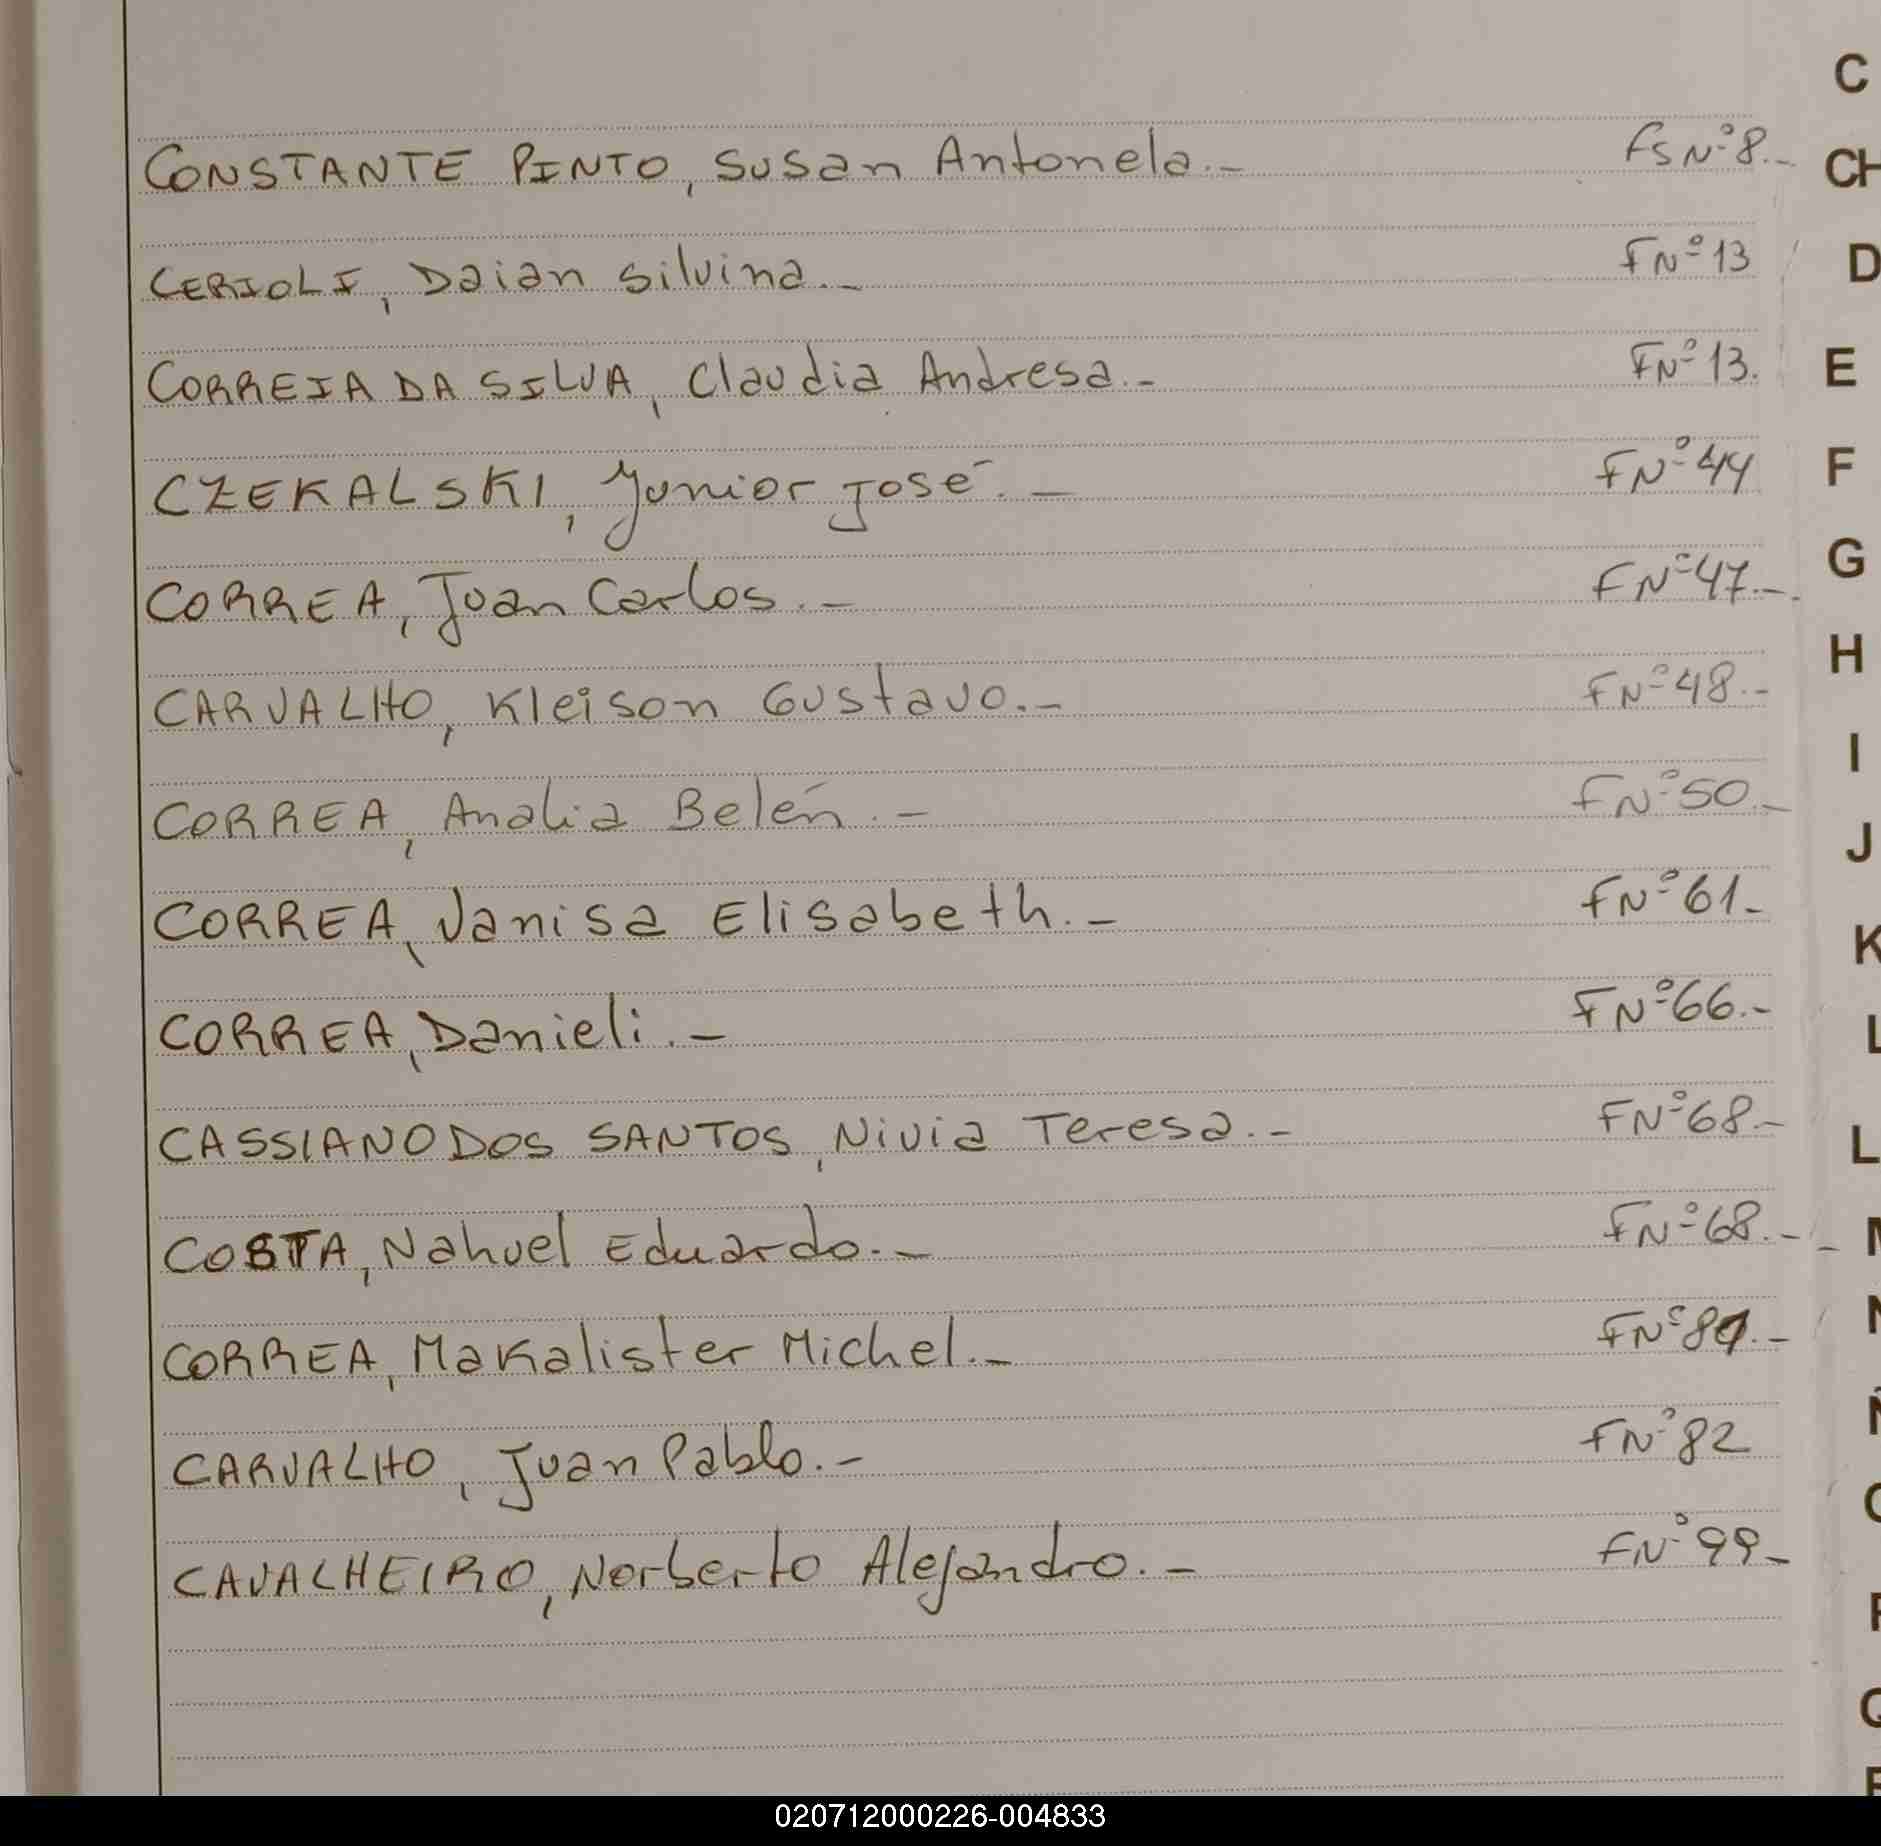 C
CONSTANTE PINTO, Susan Antonela.- FS Nº 8.-
CH
CERIOLI, Daian Silvina.- FNº 13
D
CORREIA DA SILVA, Claudia Andresa.- FNº 13.
E
CZEKALSKI, Yunior José.- FNº 44
F
CORREA, Juan Carlos.- FNº 47.-.
G
CARVALHO, Kleison Gustavo.- FNº 48.-
H
I
CORREA, Analia Belén.- FNº 50.-
J
CORREA, Janisa Elisabeth.- FNº 61-
K
CORREA, Danieli.- FNº 66.-
L
CASSIANO DOS SANTOS, Nivia Teresa.- FNº 68.-
L
COSTA, Nahuel Eduardo.- FNº 68.-
CORREA, Makalister Michel.- FNº 81.-
CARVALHO, Juan Pablo.- FNº 82
CAVALHEIRO, Norberto Alejandro.- FNº 99-
020712000226-004833